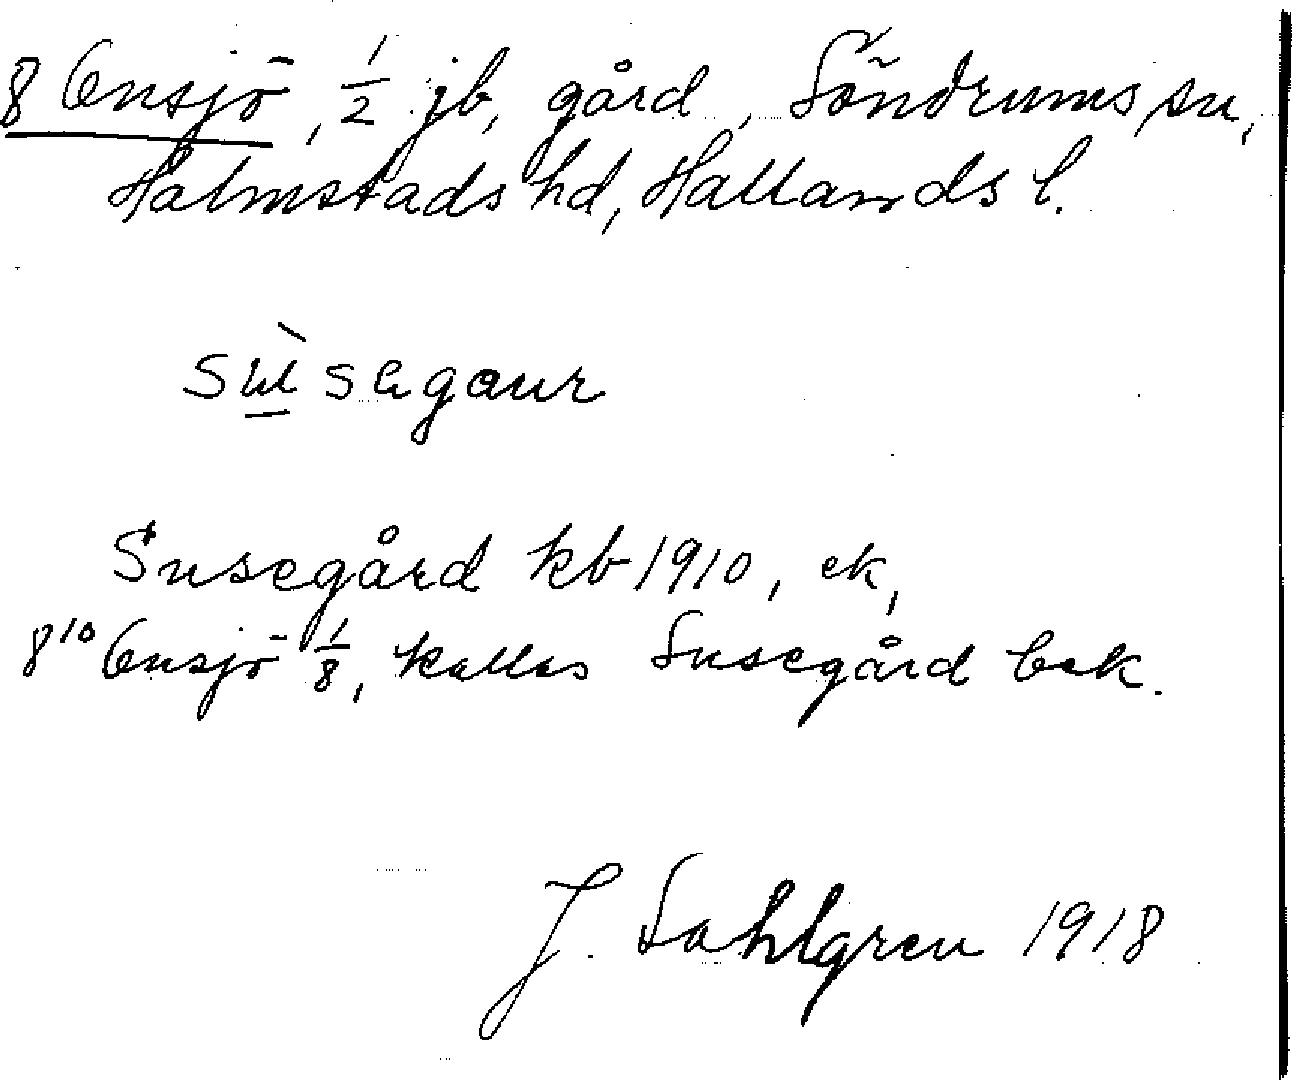 8 Ensjö, 1/2 jb, gård, Söndrums sn,
Halmstads hd, Hallands l.
Susegård kb 1910, ek,
8¹⁰ Ensjö 1/8, kallas Susegård bek.
J. Sahlgren 1918